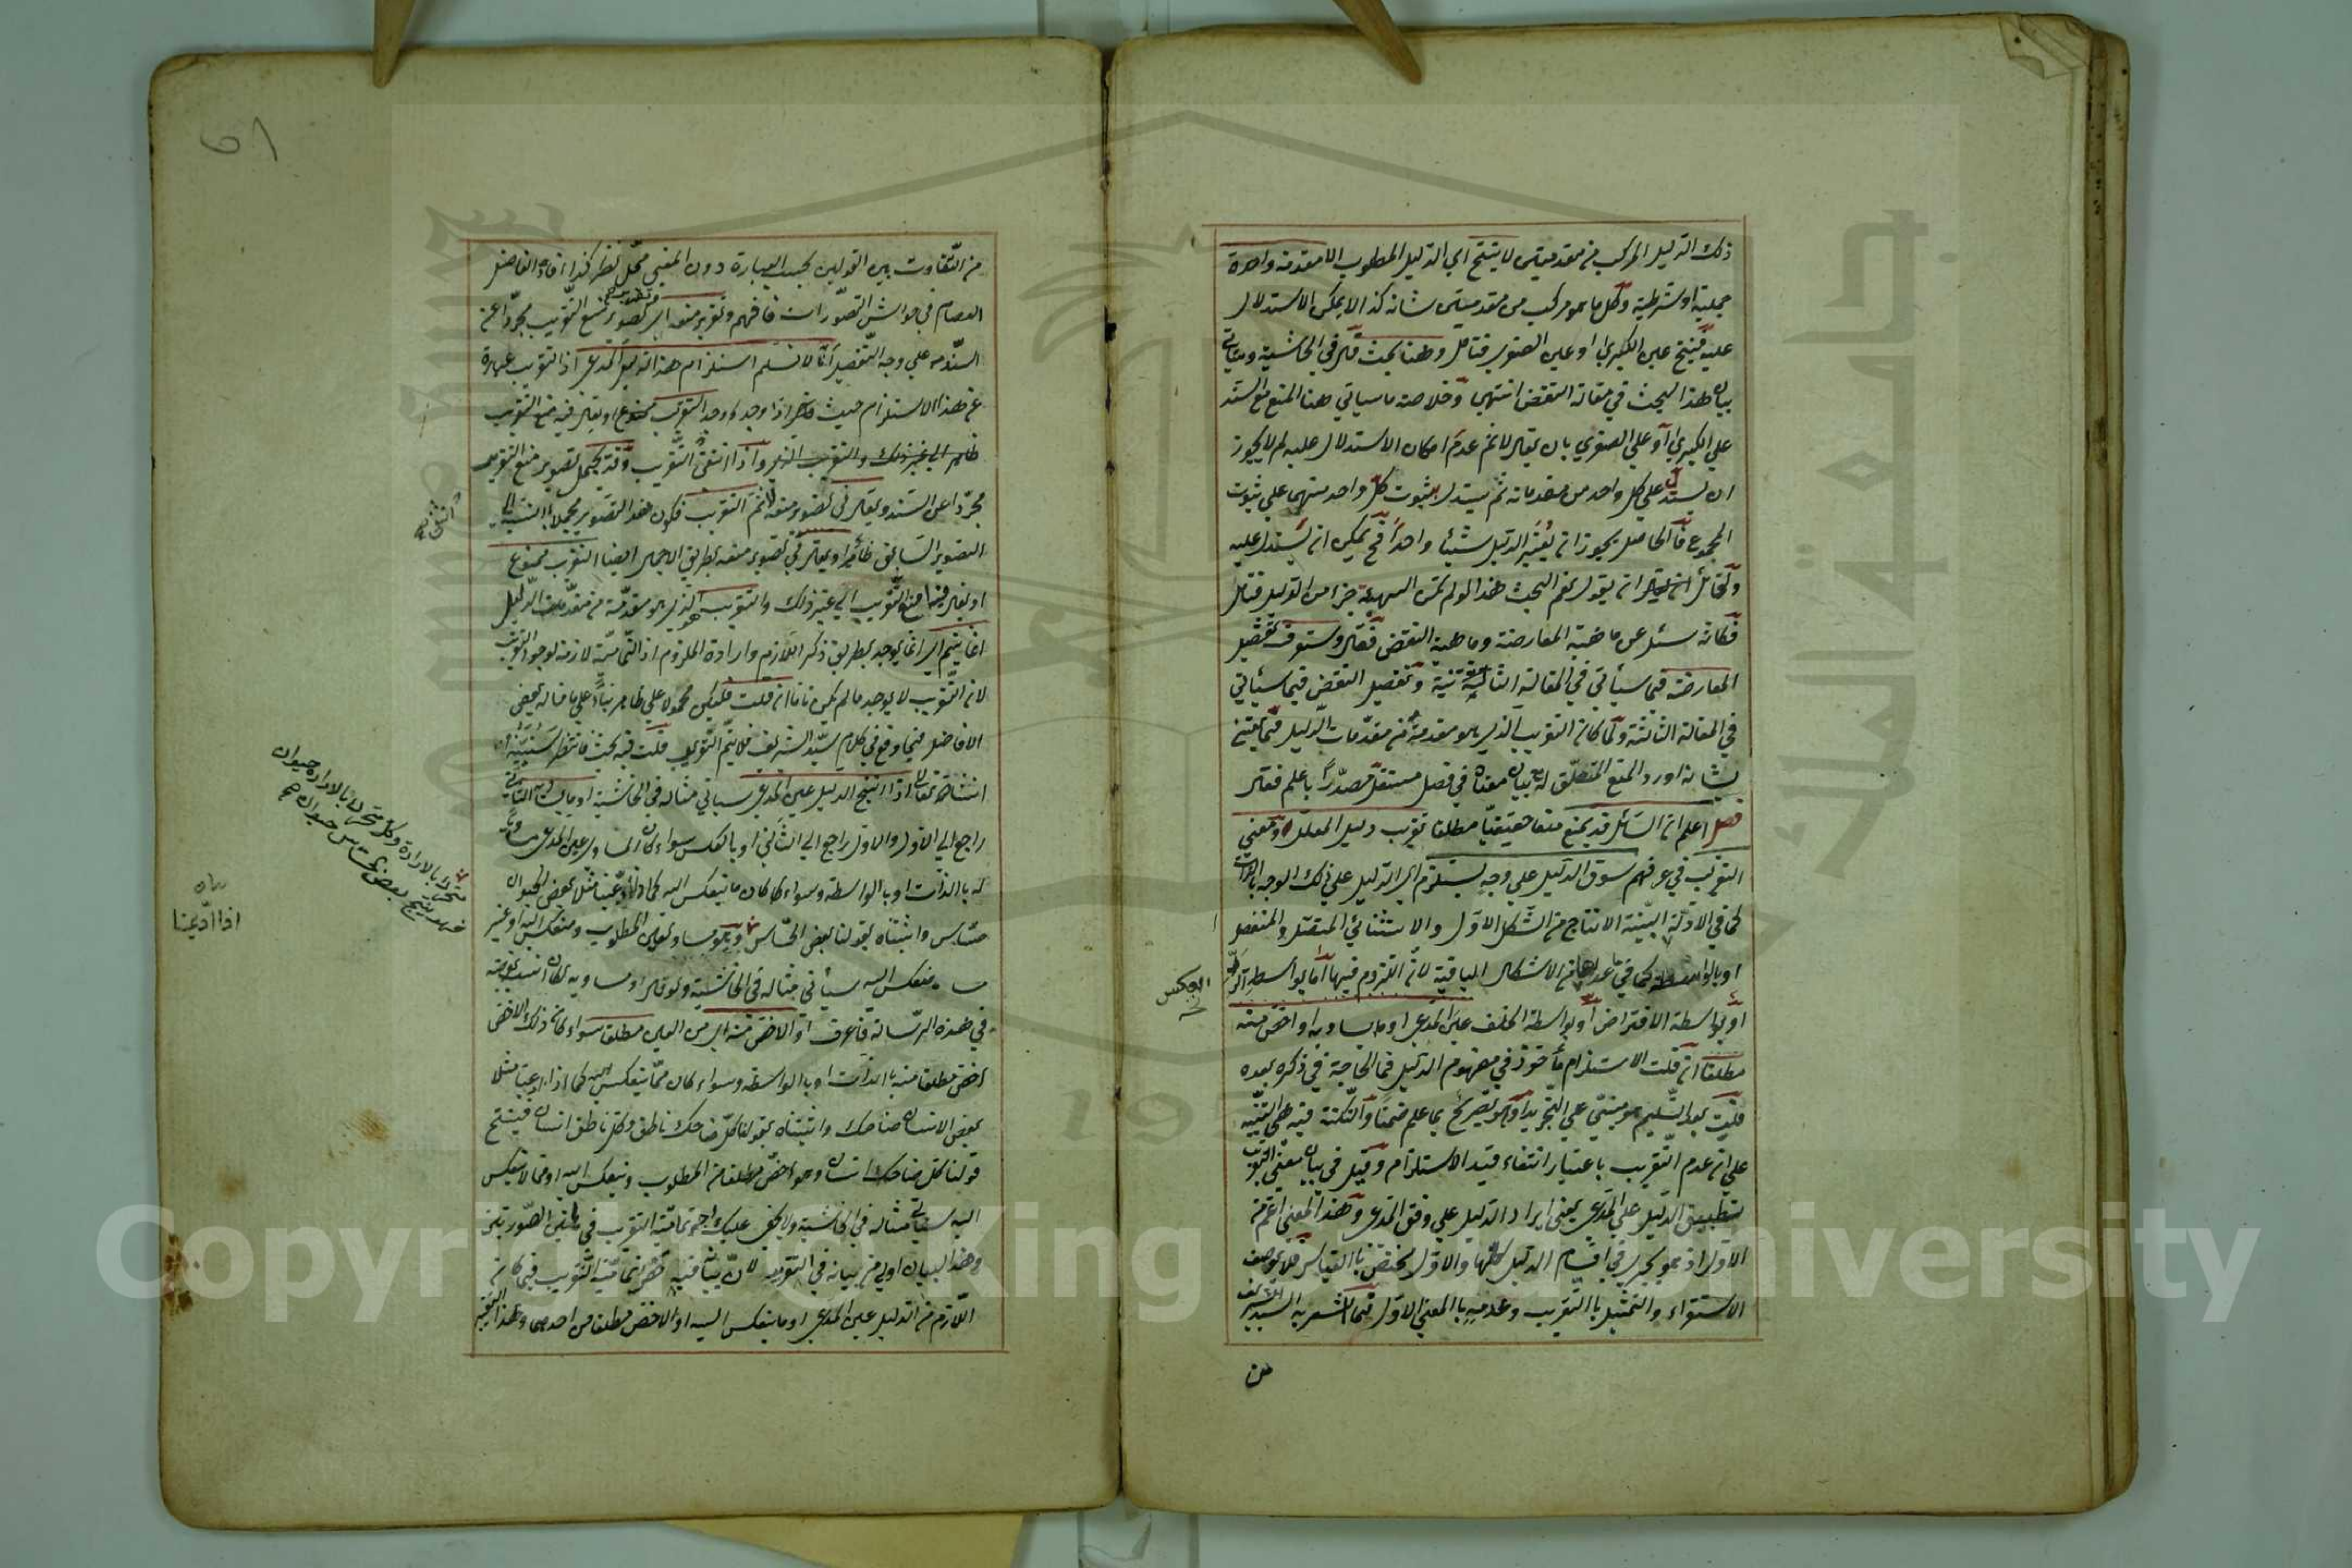 ذلك الدليل المركب من مقدمتين لا ينتج اي الدليل المطلوب الا مقدمة واحدة
حملية او شرطية وكل ما هو مركب من مقدمتين شانه كذا لا يمكن الاستدلال
عليه فينتج عين الكبرى او عين الصغرى فتامل وههنا بحث قال في الحاشية وسياتي
بيان هذا البحث في مقالة النقض انتهى وخلاصة ما سياتي ههنا المنع مع السند
علي الكبرى او علي الصغرى بان يقال لا نم عدم امكان الاستدلال عليه لم لا يجوز
ان يستدل علي كل واحد من مقدماته ثم يستدل بثبوت كل واحد منهما علي ثبوت
المجموع فالحاصل يجوز ان يعتبر الدليل شيئا واحدا فح يمكن ان يستدل عليه
ولقائل ان يقول نعم البحث هذا لو لم تكن الهيئة جزء من الدليل فتامل
فكانه سئل عن ماهية المعارضة وماهية النقض فقال وستعرف تفصيل
المعارضة فيما سيأتي في المقالة الثانية وتفصيل النقض فيما سيأتي
في المقالة الثالثة ولما كان التقريب الذي هو مقدمة من مقدمات الدليل مما يعتنى
بشانه اورد المنع المتعلق له بيان معناه في فصل مستقل مصدرا باعلم فقال
فصل اعلم ان السائل قد يمنع منعا حقيقيا مطلقا تقريب دليل المعلل ومعنى
التقريب في عرفهم سوق الدليل علي وجه يستلزم اي الدليل علي ذلك الوجه بالذات
كما في الادلة البينة الانتاج من الشكل الاول والاستثنائي المتصل والمنفصل
او بالواسطة كما في ما عداها من الاشكال الباقية لان اللزوم فيها اما بواسطة الرد
او بواسطة الافتراض او بواسطة الخلف عين المدعى او ما يساويه او اخص منه
مطلقا ان قلت الاستلزام مأخوذ في مفهوم الدليل فما الحاجة في ذكره بعده
قلت بعد التسليم هو مبني علي التجريد او هو تصريح بما علم ضمنا والنكتة فيه هي التنبيه
علي ان عدم التقريب باعتبار انتفاء قيد الاستلزام وقيل في بيان معنى التقريب
تطبيق الدليل علي المدعى بمعنى ايراد الدليل علي وفق المدعى وهذا المعنى اعم من
الاول اذ هو يجري في اقسام الدليل كلها والاول مختص بالقياس فلا يوصف
الاستقراء والتمثيل بالتقريب وعدمه بالمعنى الاول كما اشعر به السيد الشريف
من
او بالعكس
من التفاوت بين القولين بحسب العبارة دون المعنى محل نظر كذا افاده الفاضل
العصام في حواشي التصورات فافهم وتقرير منعه اي تصوير منع التقريب مجردا عن
السند علي وجه التفصيل انا لا نسلم استلزام هذا الدليل المدعى اذ التقريب عبارة
عن هذا الاستلزام حيث اذا وجد وجد التقريب ممنوع او يقال فيه منع التقريب
ظاهر الي غير ذلك والتقريب واذا انتفى التقريب وقد يجمل تصوير منع التقريب
مجردا عن السند ويقال في تصوير منعه لا نم التقريب فكان هذا التصوير مجملا بالنسبة الي
التصوير السابق ظاهر او يقال في تصوير منعه بطريق الاجمال ايضا التقريب ممنوع
او يقال فيها منع التقريب الي غير ذلك والتقريب الذي هو مقدمة من مقدمات الدليل
انما يتم اي انما يوجد بطريق ذكر اللازم وارادة الملزوم اذ التمامية لازمة لوجود التقريب
لان التقريب لا يوجد ما لم يكن تاما ان قلت فليكن محمولا علي ظاهره بناء علي ما قاله بعض
الافاضل فيما وقع في كلام سيد الشريف فلا يتم التقريب قلت فيه بحث فانتظر
انشاء الله تعالى اذا انتج الدليل عين المدعى سيأتي مثاله في الحاشية او ما يساويه الثاني
راجع الي الاول والاول راجع الي الثاني او بالعكس سواء كان المساوي عين المدعى مساويا
له بالذات او بالواسطة وسواء كان ما ينعكس اليه كما اذا ادعينا مثلا بعض الحيوان
حساس واثبتناه بقولنا بعض الحساس وهو مساو لعين المطلوب ومنعكس اليه او غير
منعكس اليه سيأتي مثاله في الحاشية ولو قال او مساويه لكان انسب بقرينه
في هذه الرسالة فاعرف او الاخص منه اي من العين مطلقا سواء كان ذلك الاخص
اخص مطلقا منه بالذات او بالواسطة وسواء كان مما ينعكس اليه كما اذا ادعينا مثلا
بعض الانسان ضاحك واثبتناه بقولنا كل ضاحك ناطق وكل ناطق انسان فينتج
قولنا كل ضاحك انسان وهو اخص مطلقا من المطلوب وينعكس اليه او مما لا ينعكس
اليه سيأتي مثاله في الحاشية ولا يخفى عليك تمامية التقريب في هاتين الصورتين
وهذا البيان اولى من بيانه في التقرير لان بيانه فيه تمامية التقريب فيما كان
اللازم من الدليل عين المدعى او ما ينعكس اليه او الاخص مطلقا من احدهما وهذا
انتفى
متحرك بالارادة وكل متحرك بالارادة حيوان
فهو ينتج بعض الحساس حيوان
اذا ادعينا